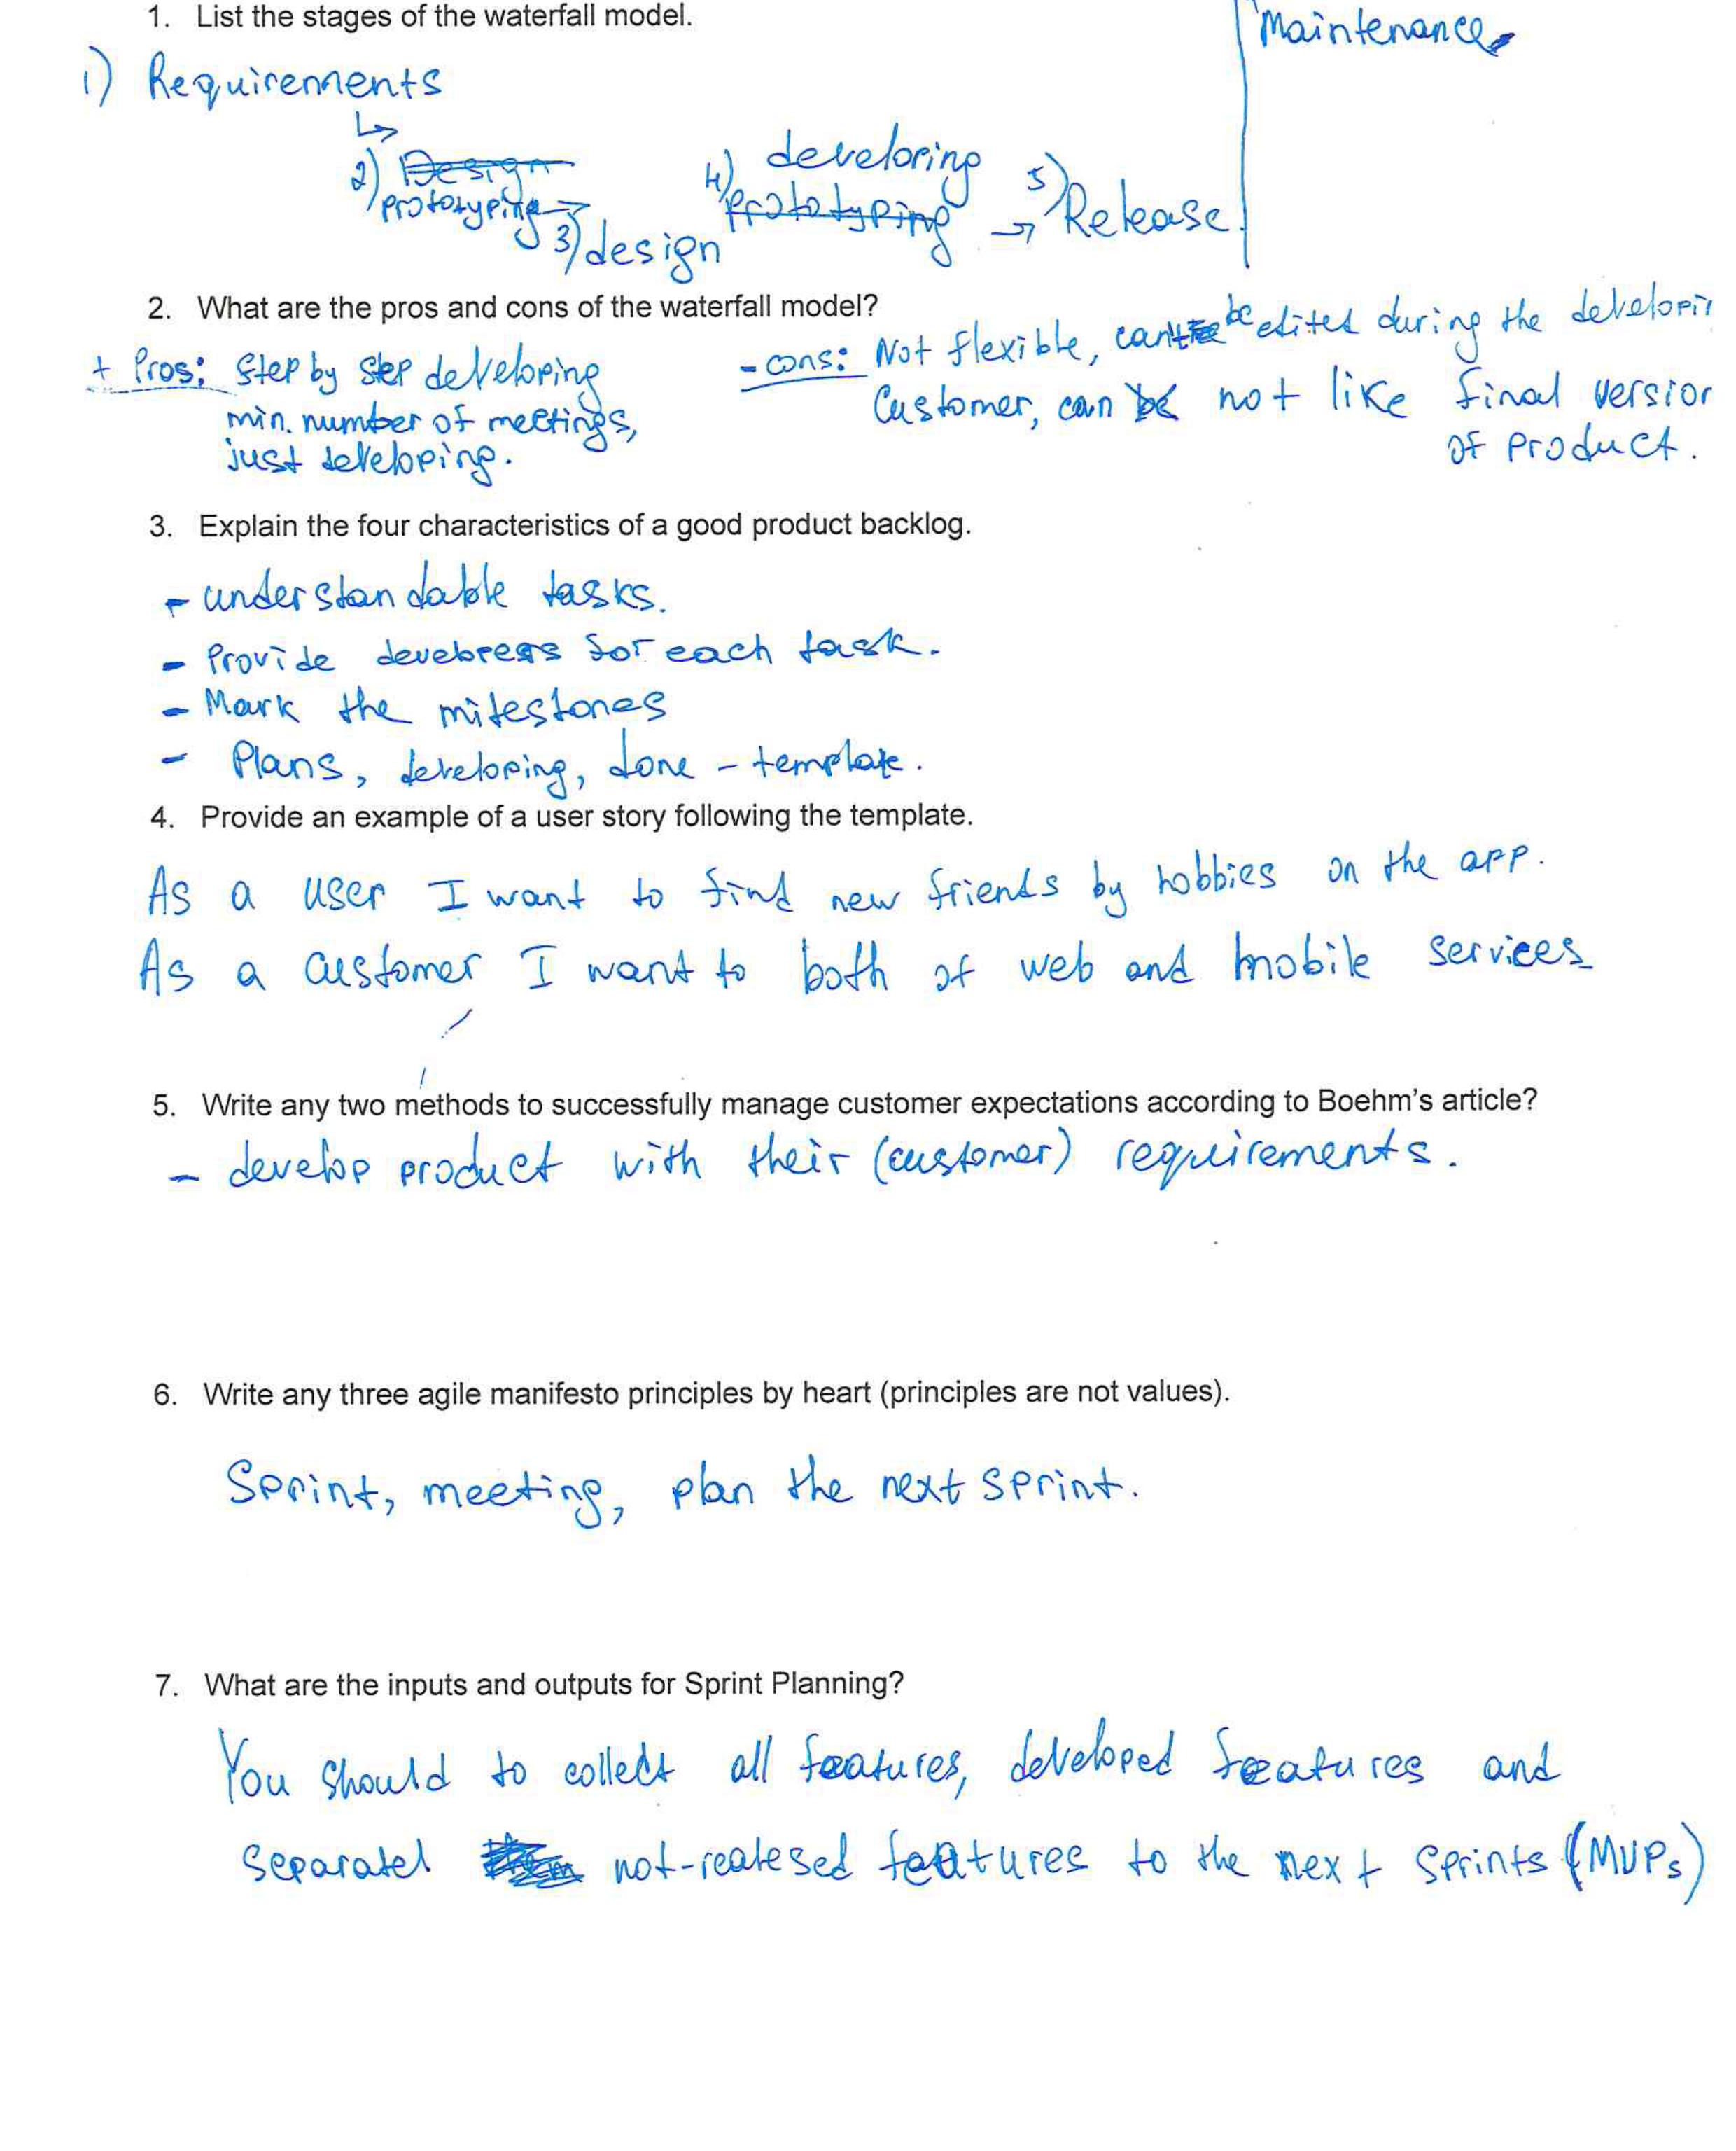 1. List the stages of the waterfall model.
Maintenance
1) Requirements
↳
2) ~~Design~~
prototyping →
3) design
4) developing
~~prototyping~~
→ 5) Release.
2. What are the pros and cons of the waterfall model?
+ Pros: Step by step developing
min. number of meetings,
just developing.
- cons: Not flexible, can't be edited during the
Customer, can not like final version
of product.
3. Explain the four characteristics of a good product backlog.
- understandable tasks.
- Provide for each task.
- Mark the milestones
- Plans, developing, done - template.
4. Provide an example of a user story following the template.
As a user I want to find new friends by hobbies on the app.
As a customer I want to both of web and mobile services
5. Write any two methods to successfully manage customer expectations according to Boehm's article?
- develop product with their (customer) requirements.
6. Write any three agile manifesto principles by heart (principles are not values).
Sprint, meeting, plan the next sprint.
7. What are the inputs and outputs for Sprint Planning?
You should to collect all features, developed features and
not-realesed features to the next sprints (MVPs)